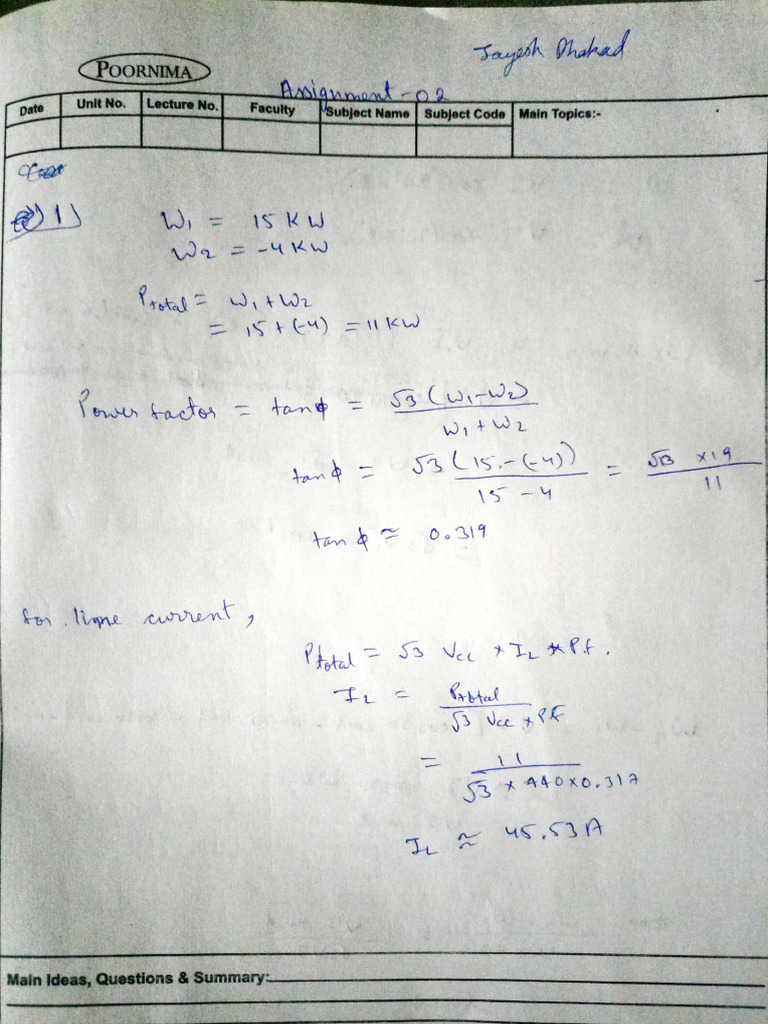 Jayesh Dhakad
POORNIMA
Assignment-02
Date Unit No. Lecture No. Faculty Subject Name Subject Code Main Topics:-
1)
W1 = 15 KW
W2 = -4 KW
Ptotal = W1 + W2
= 15 + (-4) = 11 KW
Power factor = tanϕ = √3 (W1-W2) / W1 + W2
tanϕ = √3 (15-(-4)) / 15 - 4 = √3 × 19 / 11
tan ϕ ≈ 0.319
for line current,
Ptotal = √3 VLL × IL × P.f.
IL = Ptotal / √3 VLL × P.f
= 11 / √3 × 440 × 0.317
IL ≈ 45.53 A
Main Ideas, Questions & Summary: